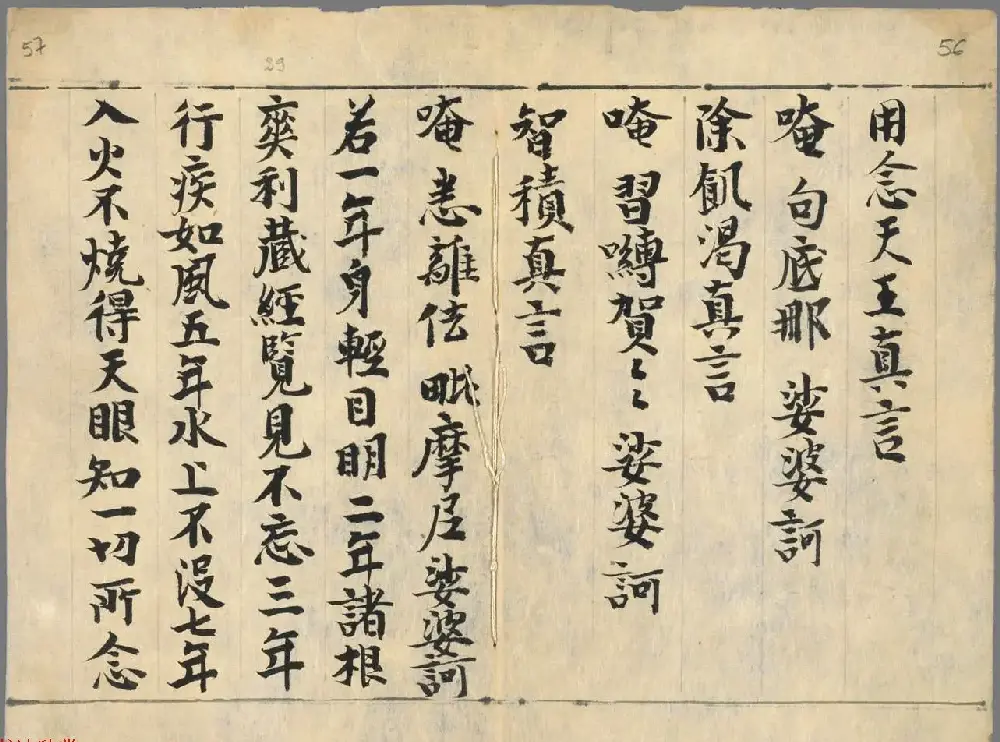 56
用念天王真言
唵 句底那 娑婆訶
除飢渴真言
唵 習囀賀〻〻 娑婆訶
智積真言
唵 悉離伭 毗摩尼娑婆訶
若一年身輕目明二年諸根
爽利藏經覽見不忘三年
行疾如風五年水上不沒七年
入火不燒得天眼知一切所念
57
29